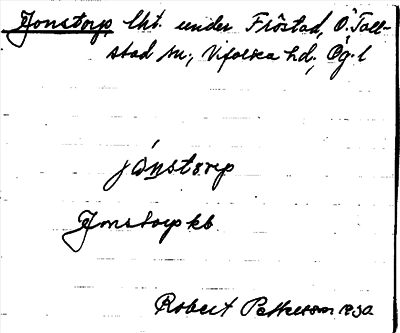 Jonstorp, lht. under Fröstad, Ö. Toll-
stad sn, Vifolka hd, Ög. l
jónstorp
Jonstorp kb.
Robert Pettersson 1930